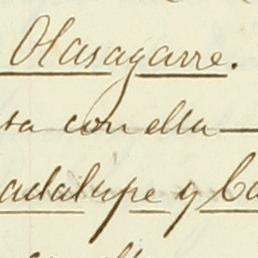 Olasagarre.
sa con ella
adalupe y Ca